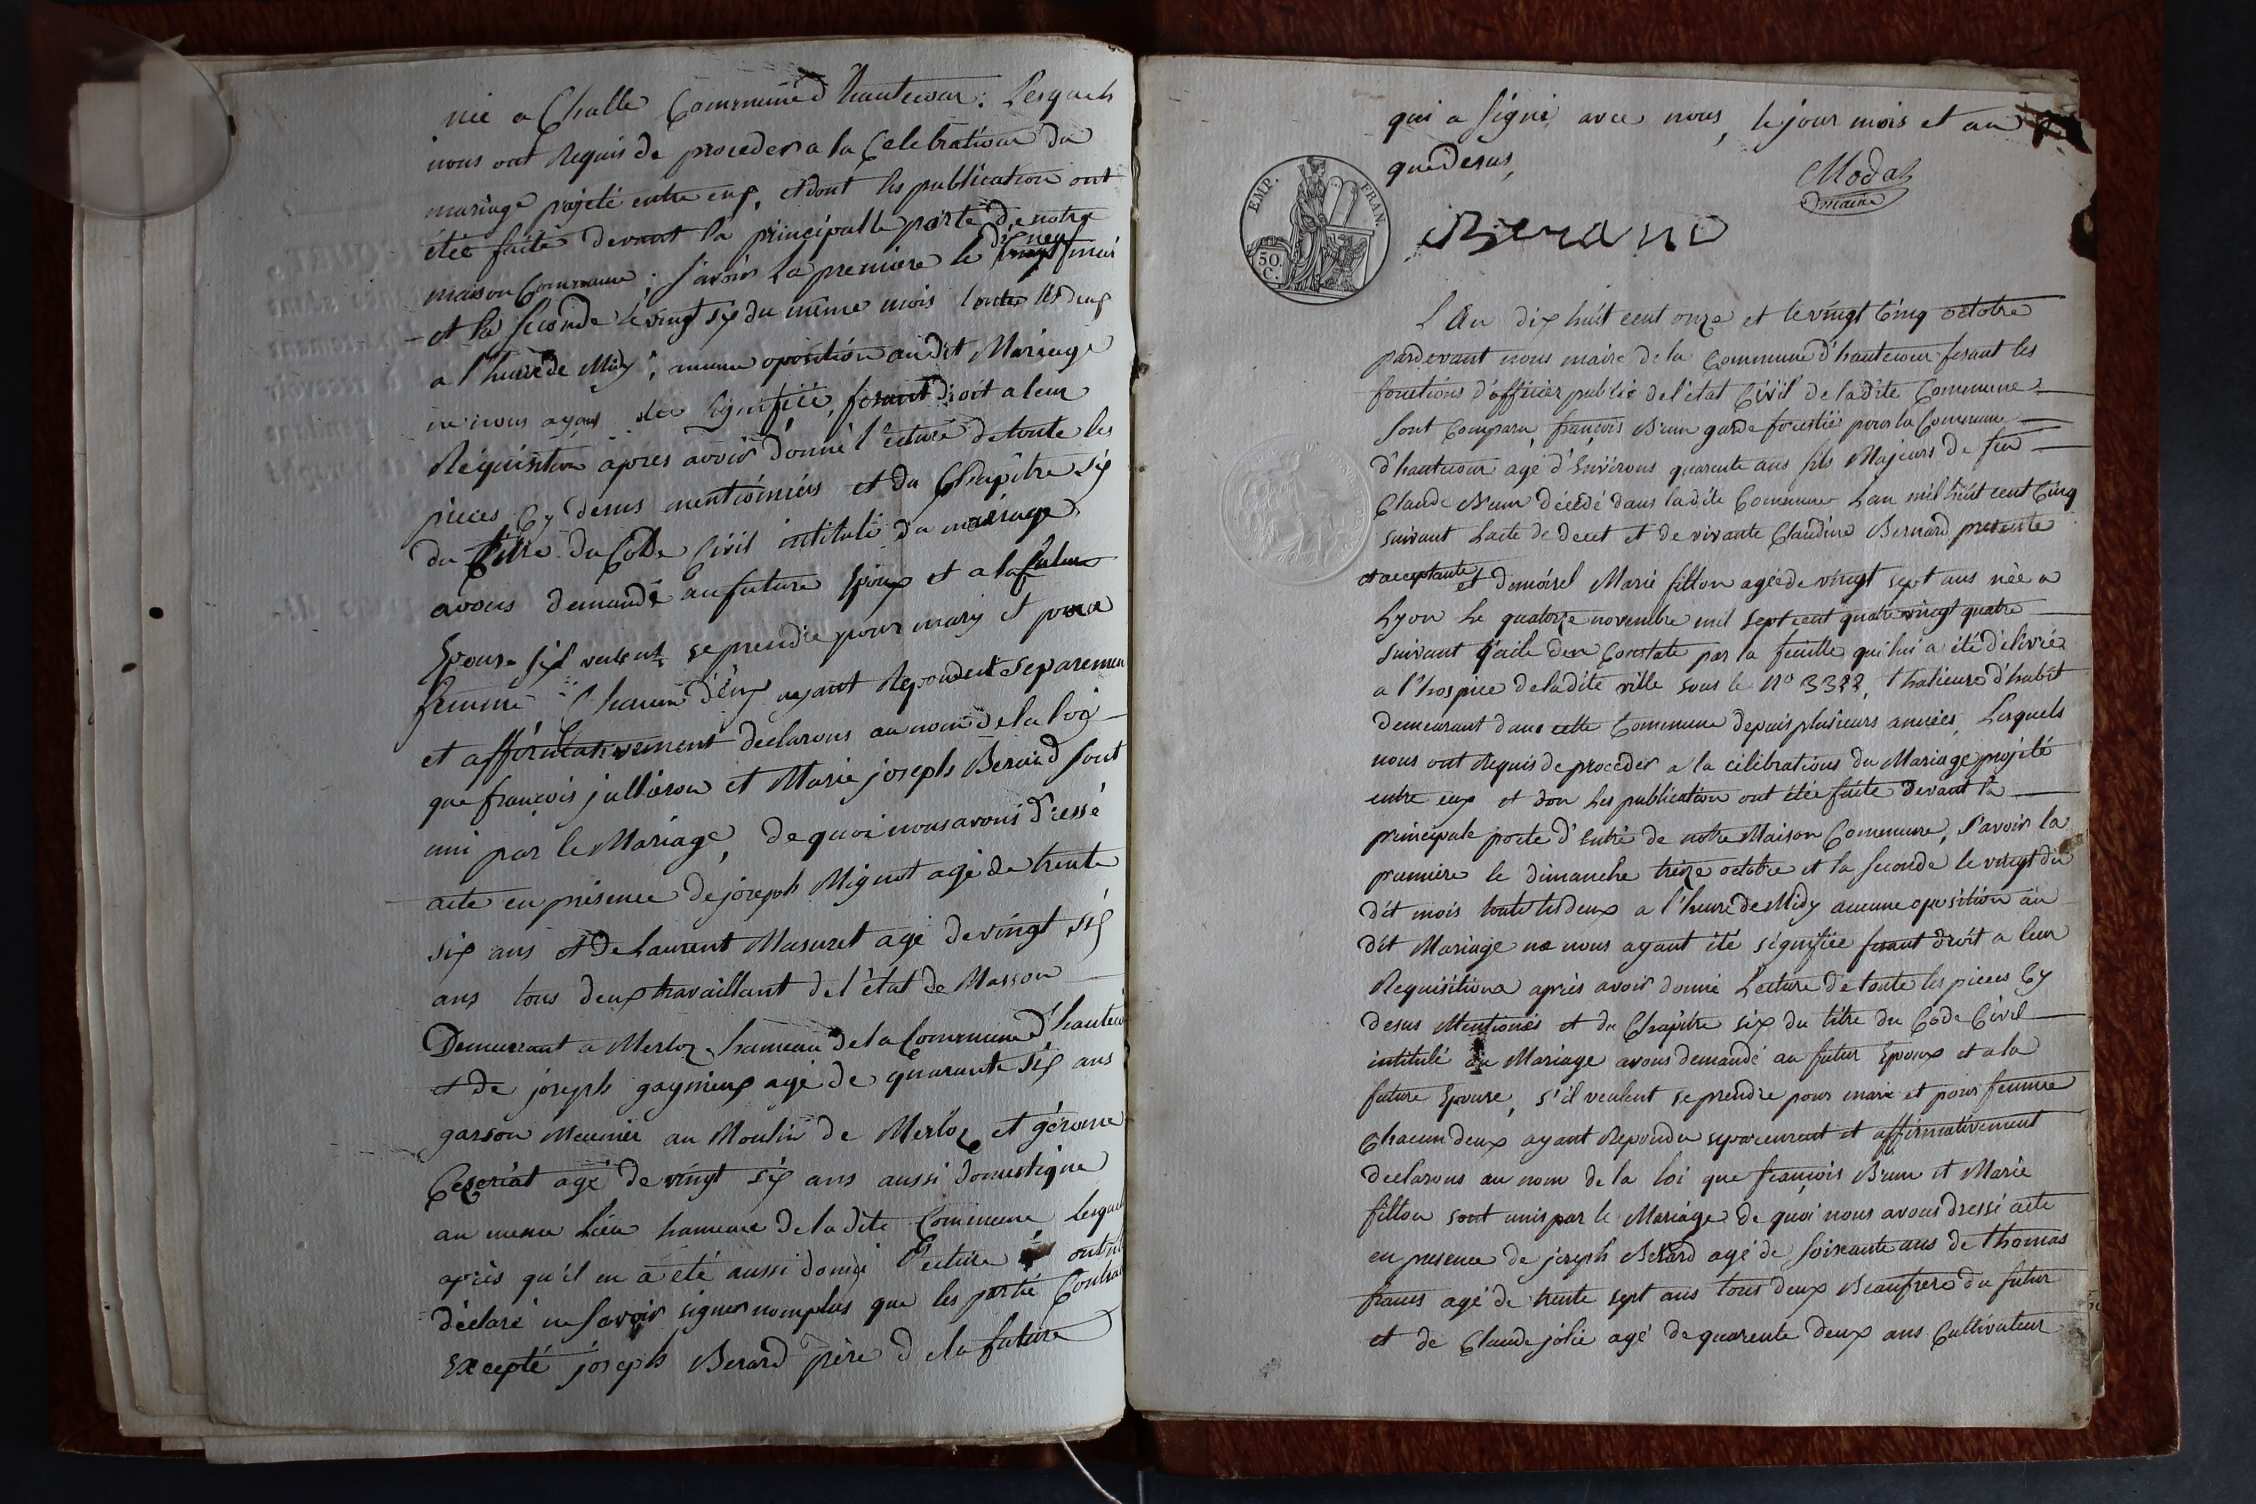 née a Challe Commune d'hautecour. Lesquels
nous ont Requis de proceder a la Celebration du
mariage projeté entre eux, et dont les publication ont
étée faite devant la principalle porte de notre
dix neuf
maison Commune; savoir La premiere le vingt mai
et la seconde le vingt six du même mois toutes les deux
a l'heure de Midy; aucune oposition au dit Mariage
ne nous ayant été signifiée, fesant droit a leur
Réquisition après avoir donné l'ecture de toute les
pieces Cy desus mentionnées et du Chapitre six
du titre du Code Civil intitulé du mariage
avons demandé au future Epoux et a la future
Epouse s'il veulent se prendre pour mary et pour
femme Chacun d'eux ayant Repondut separemen
et affirmativement declarons au nom de la loy
que françois jullieron et Marie joseph Berard sont
uni par le Mariage, de quoi nous avons dressé
acte en présence de joseph Mignot agé de trente
six ans et de Laurent Masuret agé de vingt six
ans tous deux travaillant de l'état de Masson
Demeurant a Merloz hameau de la Commune d'hautecour
et de joseph gagnieux agé de quarante six ans
garson Meunier au Moulin de Merloz et gérome
Ceseriat agé de vingt six ans aussi domestique
au meme Lieu hameau de la dite Commune Lesquels
après qu'il en a été aussi donné l'ecture ont
déclaré ne savoir signer nomplus que les partie Contra
Excepté joseph Berard père d ela future
qui a signé avec nous, le jour mois et an
que desus,
Modas
maire
EMP. FRAN.
50 C.
Berard
L An dix huit cent onze et le vingt Cinq octobre
pardevant nous maire de la Commune d'hautecour fesant les
fonctions d'officier public de l'état Civil de la dite Commune
sont Comparu françois Brun garde forestié pour la Commune
d'hautecour agé d'Environs quarente ans fils Majeurs de feu
Claude Brun décédé dans ladite Commune Lan mil huit cent Cinq
suivant Lacte de decet et de vivante Claudine Bernard presente
et aceptante
et demoisel Marie fillon agée de vingt sept ans née a
Lyon Le quatorze novembre mil sept cent quatre vingt quatre
suivant qu'il en Constate par la feuille qui lui a été délivrée
a l'hospice de ladite ville sous le N° 3322, thalieure d'habit
demeurant dans cette Commune depuis plusieurs années, Lesquels
nous ont Requis de proceder a la célébrations du Mariage projeté
entre eux et don Les publication ont étée faite devant la
principale porte d'entré de notre Maison Commune, savoir la
premiere le dimanche treize octobre et la seconde le vingt du
dit mois toute les deux a l'heure de Midy aucune oposition au
dit Mariage ne nous ayant été signifiée fesant droit a leur
Requisitions après avoir donné Lecture de toute les pieces Cy
desus Mentionées et du Chapitre six du titre du Code Civil
intitulé du Mariage avons demandé au futur Epoux et a la
future Epouse, s'il veulent se prendre pour mari et pour femme
Chacun deux ayant Repondu separement et affirmativement
declarons au nom de la loi que françois Brun et Marie
fillon sont unis par le Mariage de quoi nous avons dressé acte
en presence de joseph Berard agé de soixante ans de thomas
frances agé de trente sept ans tous deux Beaufrere du futur
et de Claude jolie agé de quarente deux ans Cultivateur